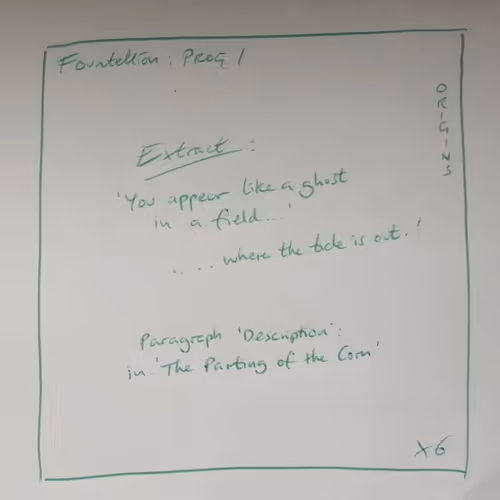 Fountellion: PROG 1
ORIGINS
Extract:
'You appear like a ghost
in a field...'
.... where the tide is out.'
Paragraph 'Description':
in 'The Parting of the Corn'
X6